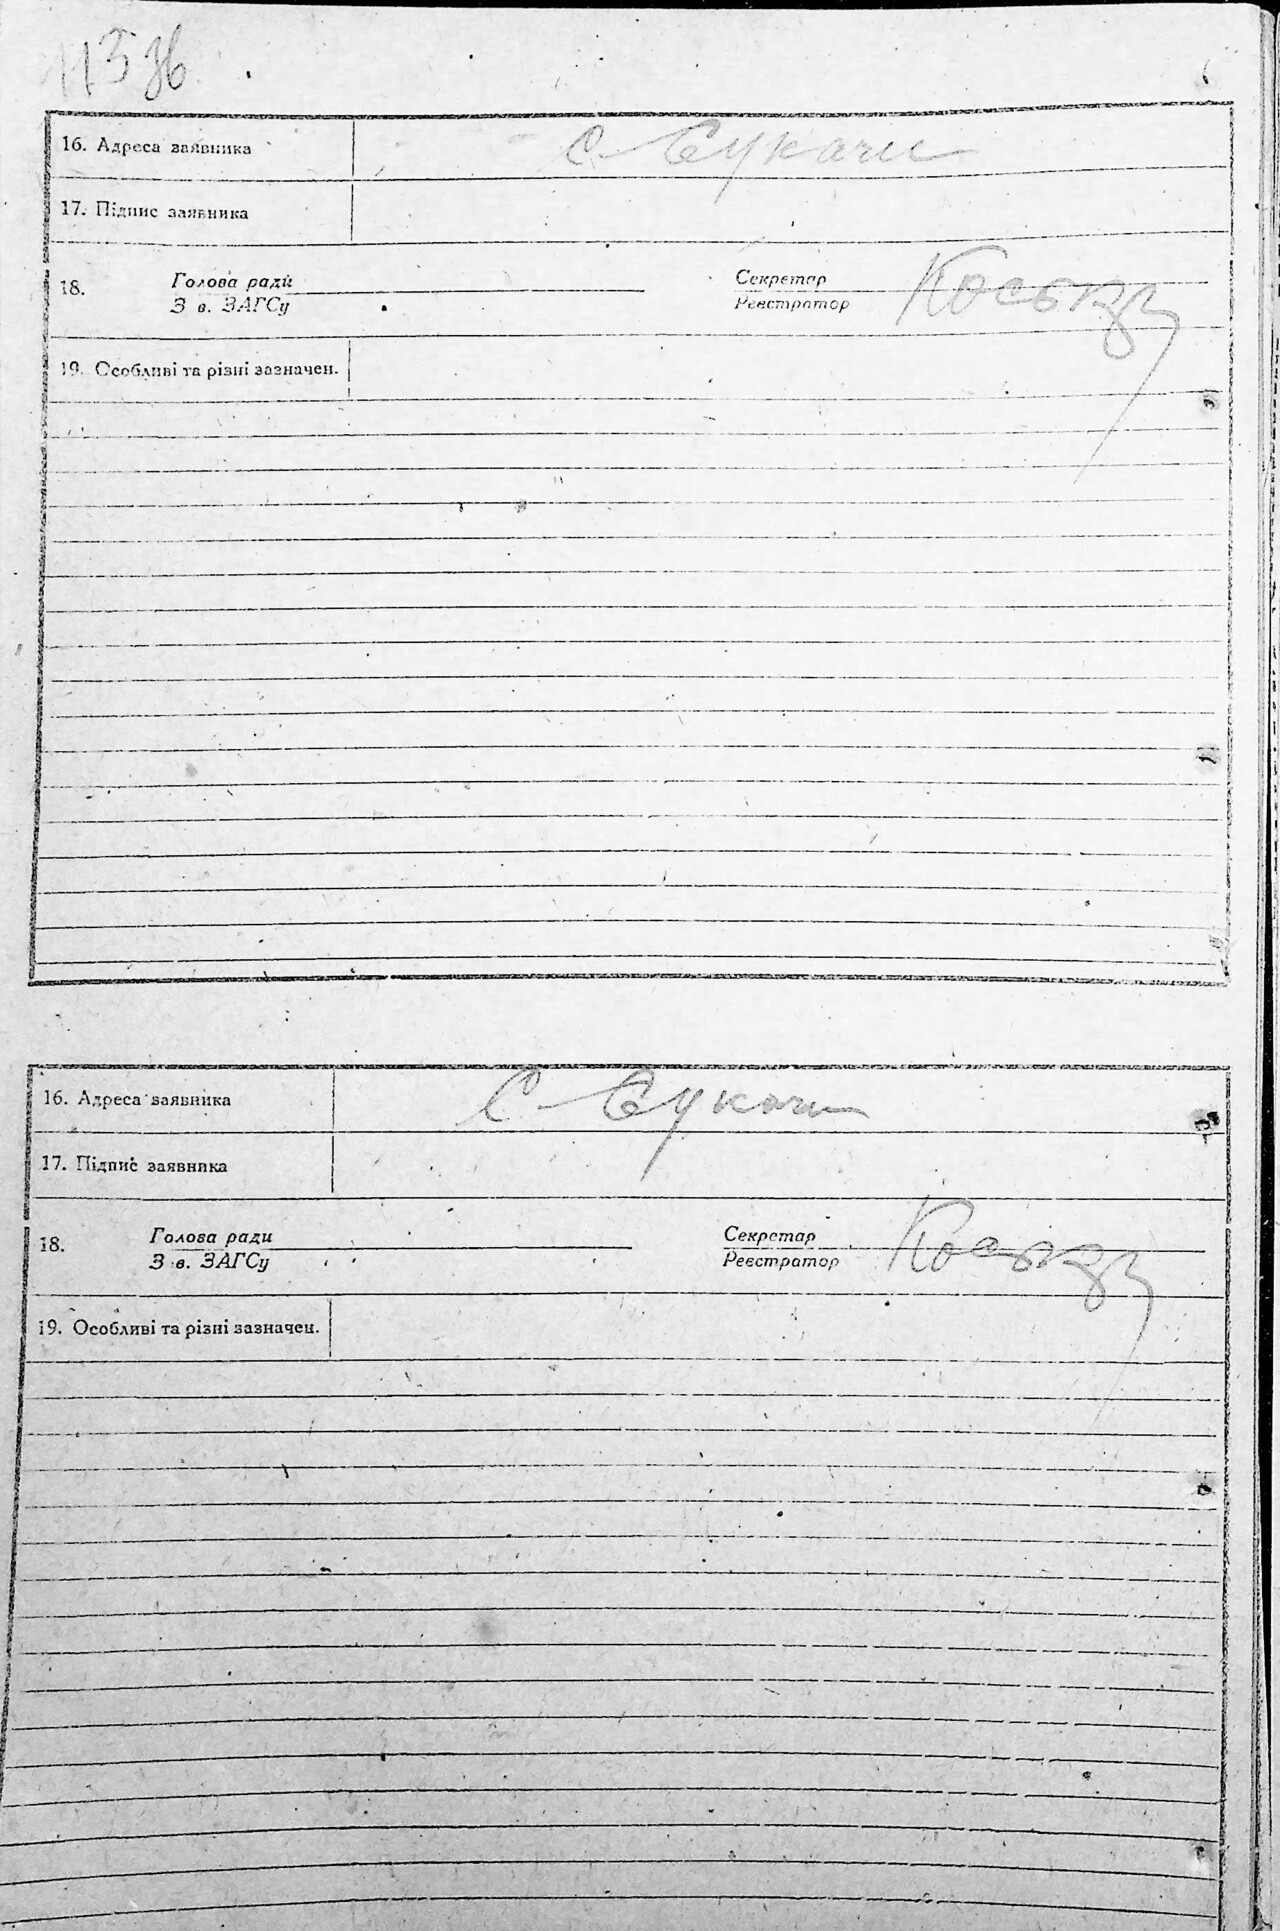 113 зв
16. Адреса заявника с. Сукачи
17. Підпис заявника
18. Голова ради Секретар
З в. ЗАГСу Реєстратор
19. Особливі та різні зазначен.
16. Адреса заявника с. Сукачи
17. Підпис заявника
18. Голова ради Секретар
З в. ЗАГСу Реєстратор
19. Особливі та різні зазначен.